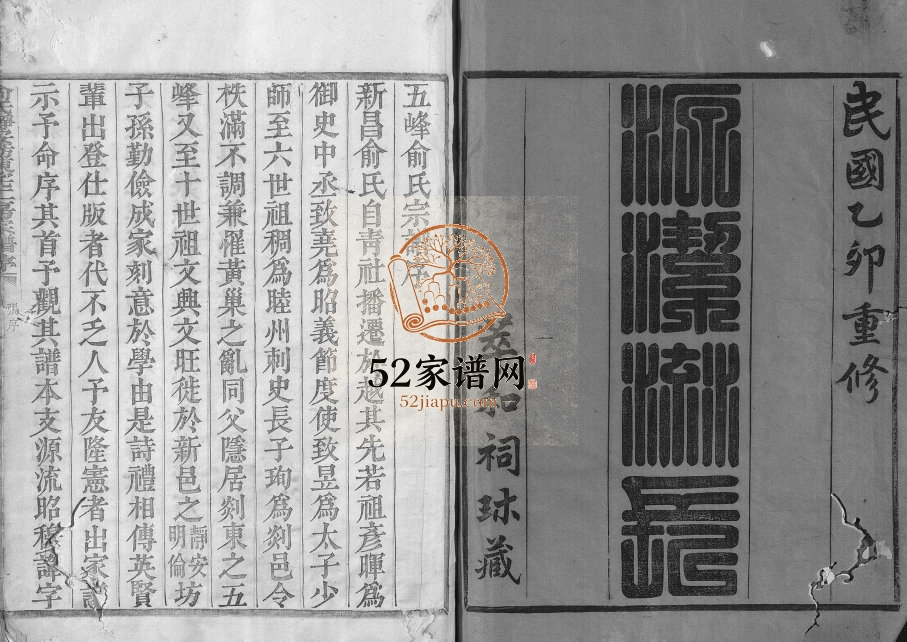 民國乙卯重修
源潔流長
和祠珎藏
五峰俞氏宗序
新昌俞氏自靑社播遷於越其先若祖彥暉爲
御史中丞致堯爲昭義節度使致昱爲太子少
師至六世祖稠爲睦州刺史長子珣爲剡邑令
秩滿不調兼罹黃巢之亂同父隱居剡東之五
峰又至十世祖文典文旺徙於新邑之靜安明倫坊
子孫勤儉成家刻意於學由是詩禮相傳英賢
輩出登仕版者代不乏人予友隆憲者出家譜
示予命序其首予觀其譜本支源流昭穆諱字
52家谱网
52jiapu.com